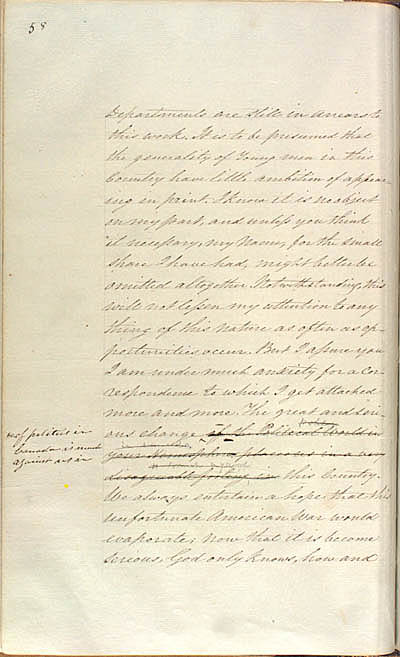 58
Departments are still in arrears to
this work. It is to be presumed that
the generality of Young men in this
Country have little ambition of appear-
ing in print. I know it is no object
on my part, and unless you think
it necessary, my Name, for the small
share I have had, might better be
omitted altogether. Notwithstanding, this
will not lessen my attention to any
thing of this nature as often as op-
portunities occur. But I assure you
I am under much anxiety for a Cor-
respondence to which I get attached
more and more. The great and seri-
ous change in the Political World in
your Hemisphere places us in a very
disagreeable feeling in this Country.
We always entertain a hope that this
unfortunate American War would
evaporate; now that it is become
serious, God only knows, how and
of politics in
Canada is much
against us in